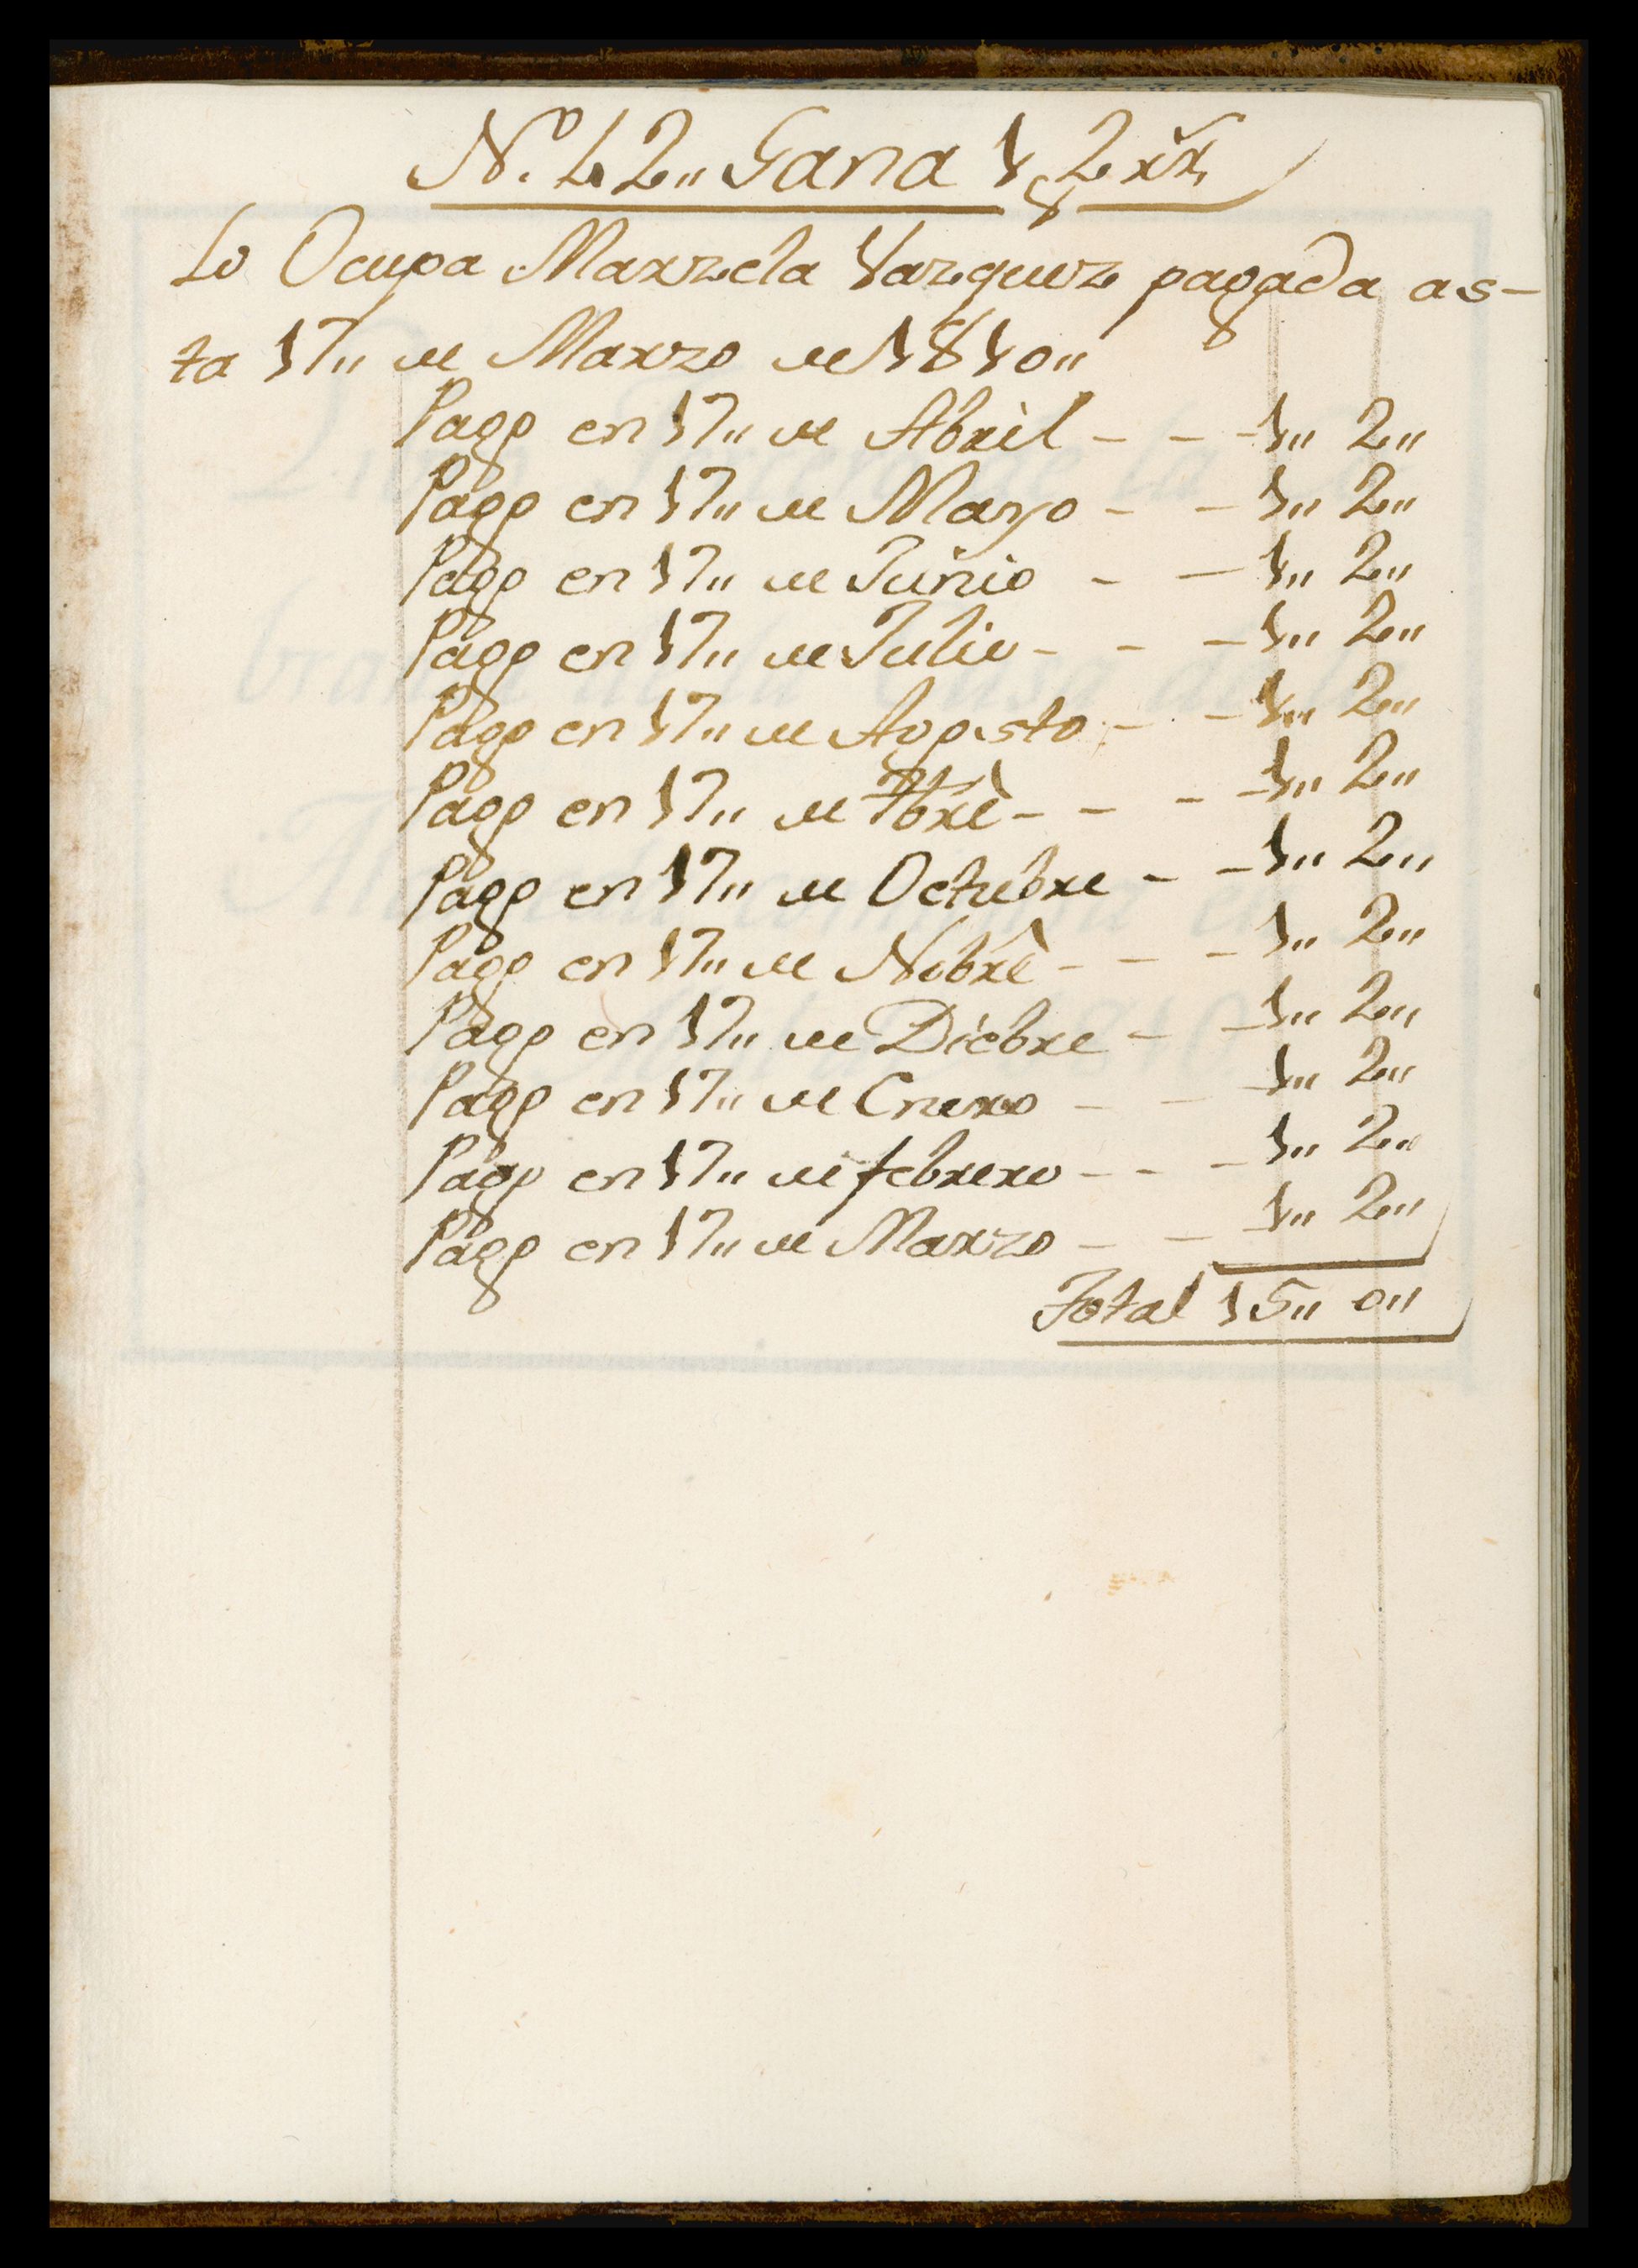 N.º 42,, Gana 1,,2 rrˢ
Lo Ocupa Marzela Vazquez pagada as-
ta 17,, de Marzo de 1810,,
Pagó en 17,, de Abril - - - 1,, 2,,
Pagó en 17,, de Mayo - - 1,, 2,,
Pagó en 17,, de Junio - - 1,, 2,,
Pagó en 17,, de Julio - - - 1,, 2,,
Pagó en 17,, de Agosto - - 1,, 2,,
Pagó en 17,, de 7bré - - - - 1,, 2,,
Pagó en 17,, de Octubre - - 1,, 2,,
Pagó en 17,, de Nobré - - - 1,, 2,,
Pagó en 17,, de Diebre - - 1,, 2,,
Pagó en 17,, de Enero - - 1,, 2,,
Pagó en 17,, de febrero - - - 1,, 2,,
Pagó en 17,, de Marzo - - 1,, 2,,
Total 15,, 0,,